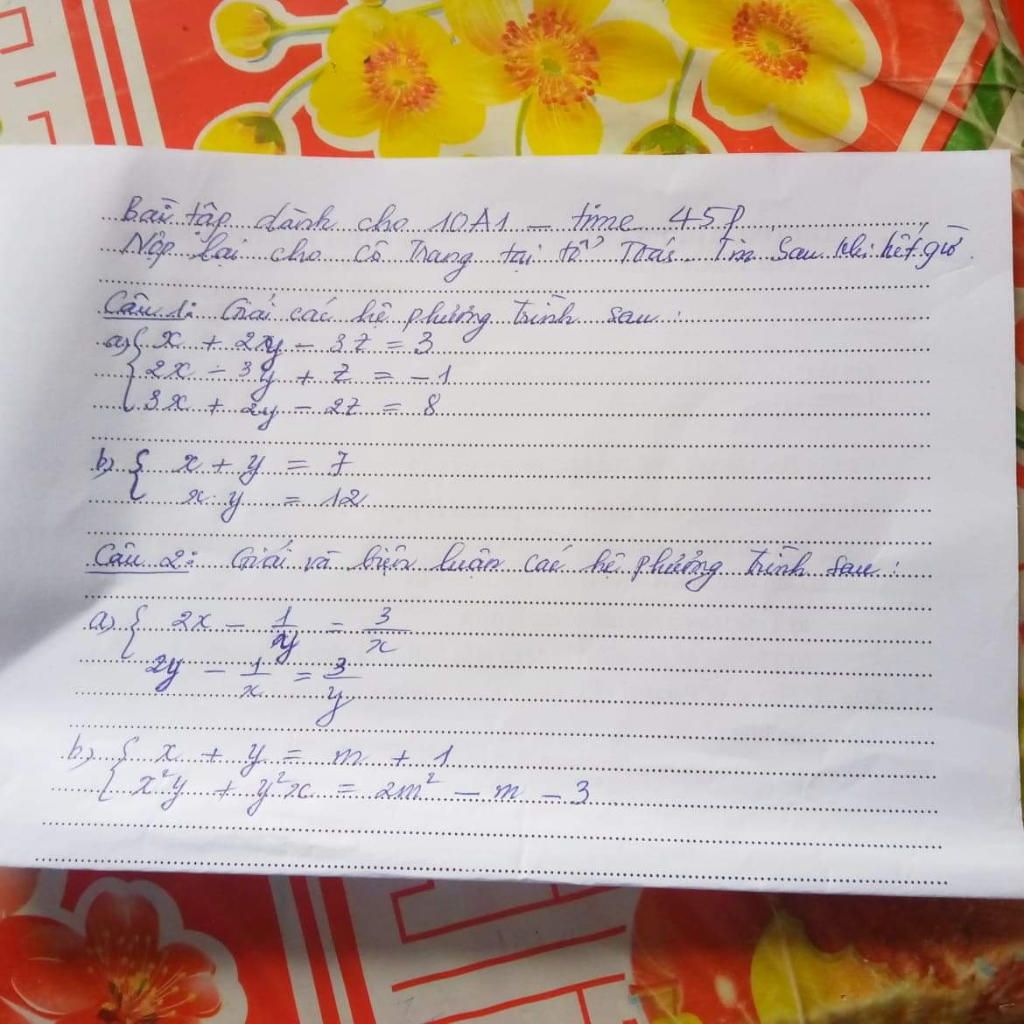 Bài tập dành cho 10A1 – time 45p
Nộp lại cho cô Trang tại tổ Toán Tin sau khi hết giờ.
Câu 1: Giải các hệ phương trình sau:
a) { x + 2y – 3z = 3
2x – 3y + z = –1
3x + 2y – 2z = 8
b) { x + y = 7
x.y = 12
Câu 2: Giải và biện luận các hệ phương trình sau:
a) { 2x – 1/y = 3/x
2y – 1/x = 3/y
b) { x + y = m + 1
x²y + y²x = 2m² – m – 3